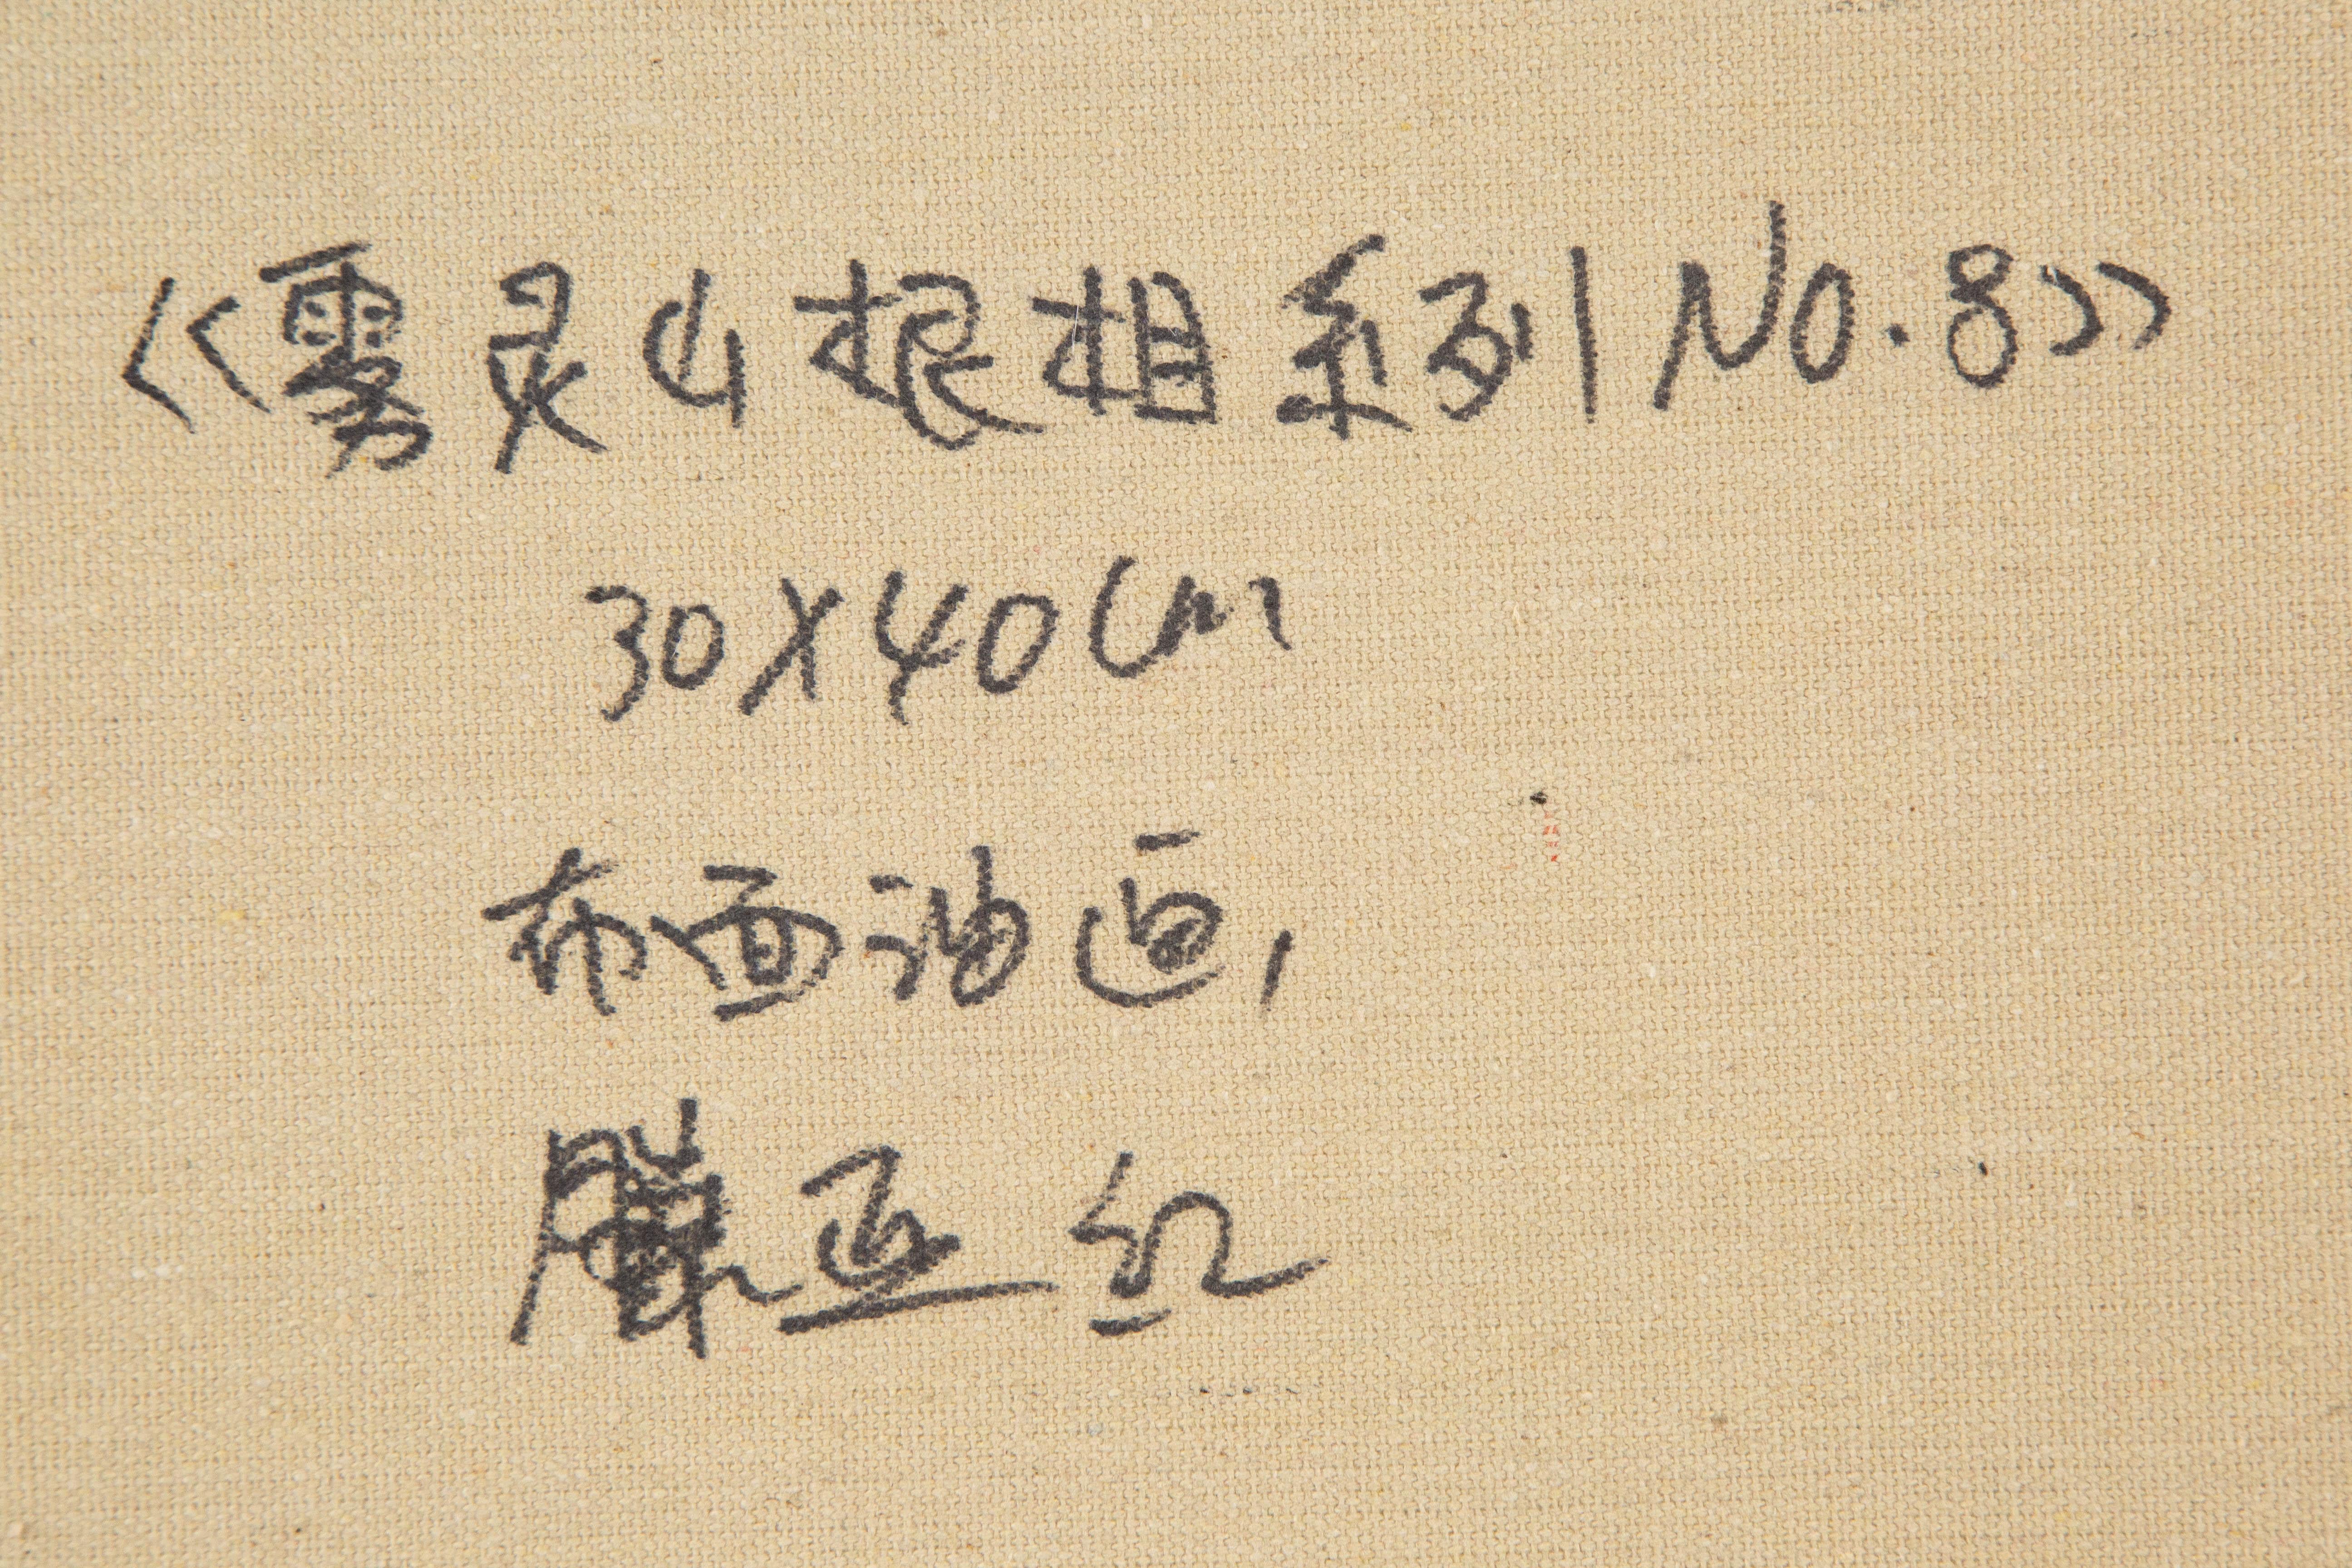 《雾灵山根相系列NO.8》
30X40cm
布面油画,
滕亚红